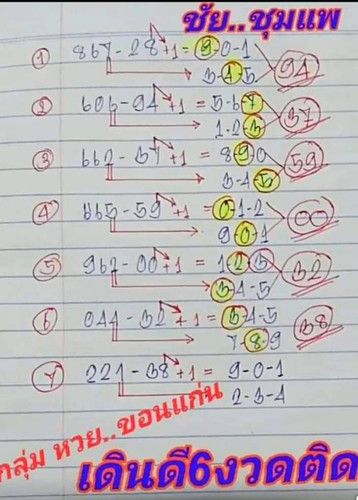 ชัย..ชุมแพ
① 867-28+1=9-0-1
3-4-5 94
② 606-94+1=5-6-7
1-2-3 37
③ 662-37+1=8-9-0
3-4-5 59
④ 665-59+1=0-1-2
9-0-1 00
⑤ 962-00+1=1-2-3
3-4-5 32
⑥ 044-32+1=3-4-5
7-8-9 38
⑦ 221-38+1=9-0-1
2-3-4
กลุ่ม หวย..ขอนแก่น
เดินดี6งวดติด